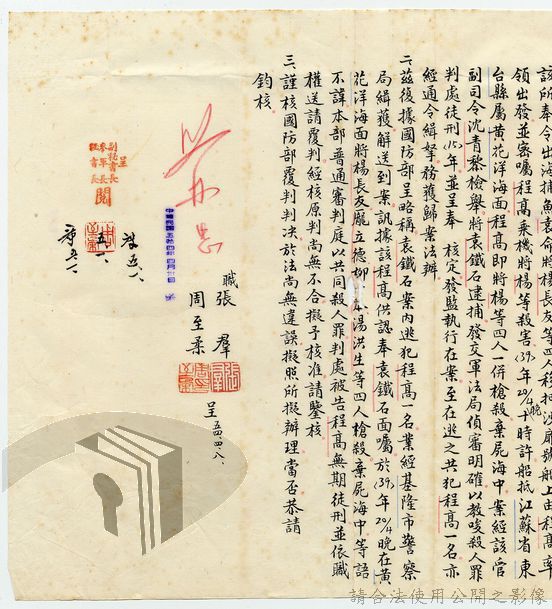 該所奉令出海捕魚袁命將楊長友等四人移把沙扇號船上由程高率
領出發並密囑程高乘機將楊等殺害(39)年20/4晚十時許船抵江蘇省東
台縣屬黃花洋海面程高即將楊等四人一併槍殺棄屍海中案經該管
副司令沈青黎檢舉將袁鐵石逮捕發交軍法局偵審明確以教唆殺人罪
判處徒刑15年並呈奉 核定發監執行在案至在逃之共犯程高一名亦
經通令緝拏務獲歸案法辦
二、茲復據國防部呈略稱袁鐵石案內逃犯程高一名業經基隆市警察
局緝獲解送到案訊據該程高供認奉袁鐵石面囑於(39)年20/4晚在黃
花洋海面將楊長友龐立德柳 本湯洪生等四人槍殺棄屍海中等語
不諱本部普通審判庭以共同殺人罪判處被告程高無期徒刑並依職
權送請覆判經核原判尚無不合擬予核准請鑒核
三、謹核國防部覆判判決於法尚無違誤擬照所擬辦理當否恭請
鈞核。
職張 羣
周至柔
呈 54.4.8.
中華民國五拾四年四月 日
如擬
呈
副秘書長
參軍長
秘書長
閱
五、一
請合法使用公開之影像